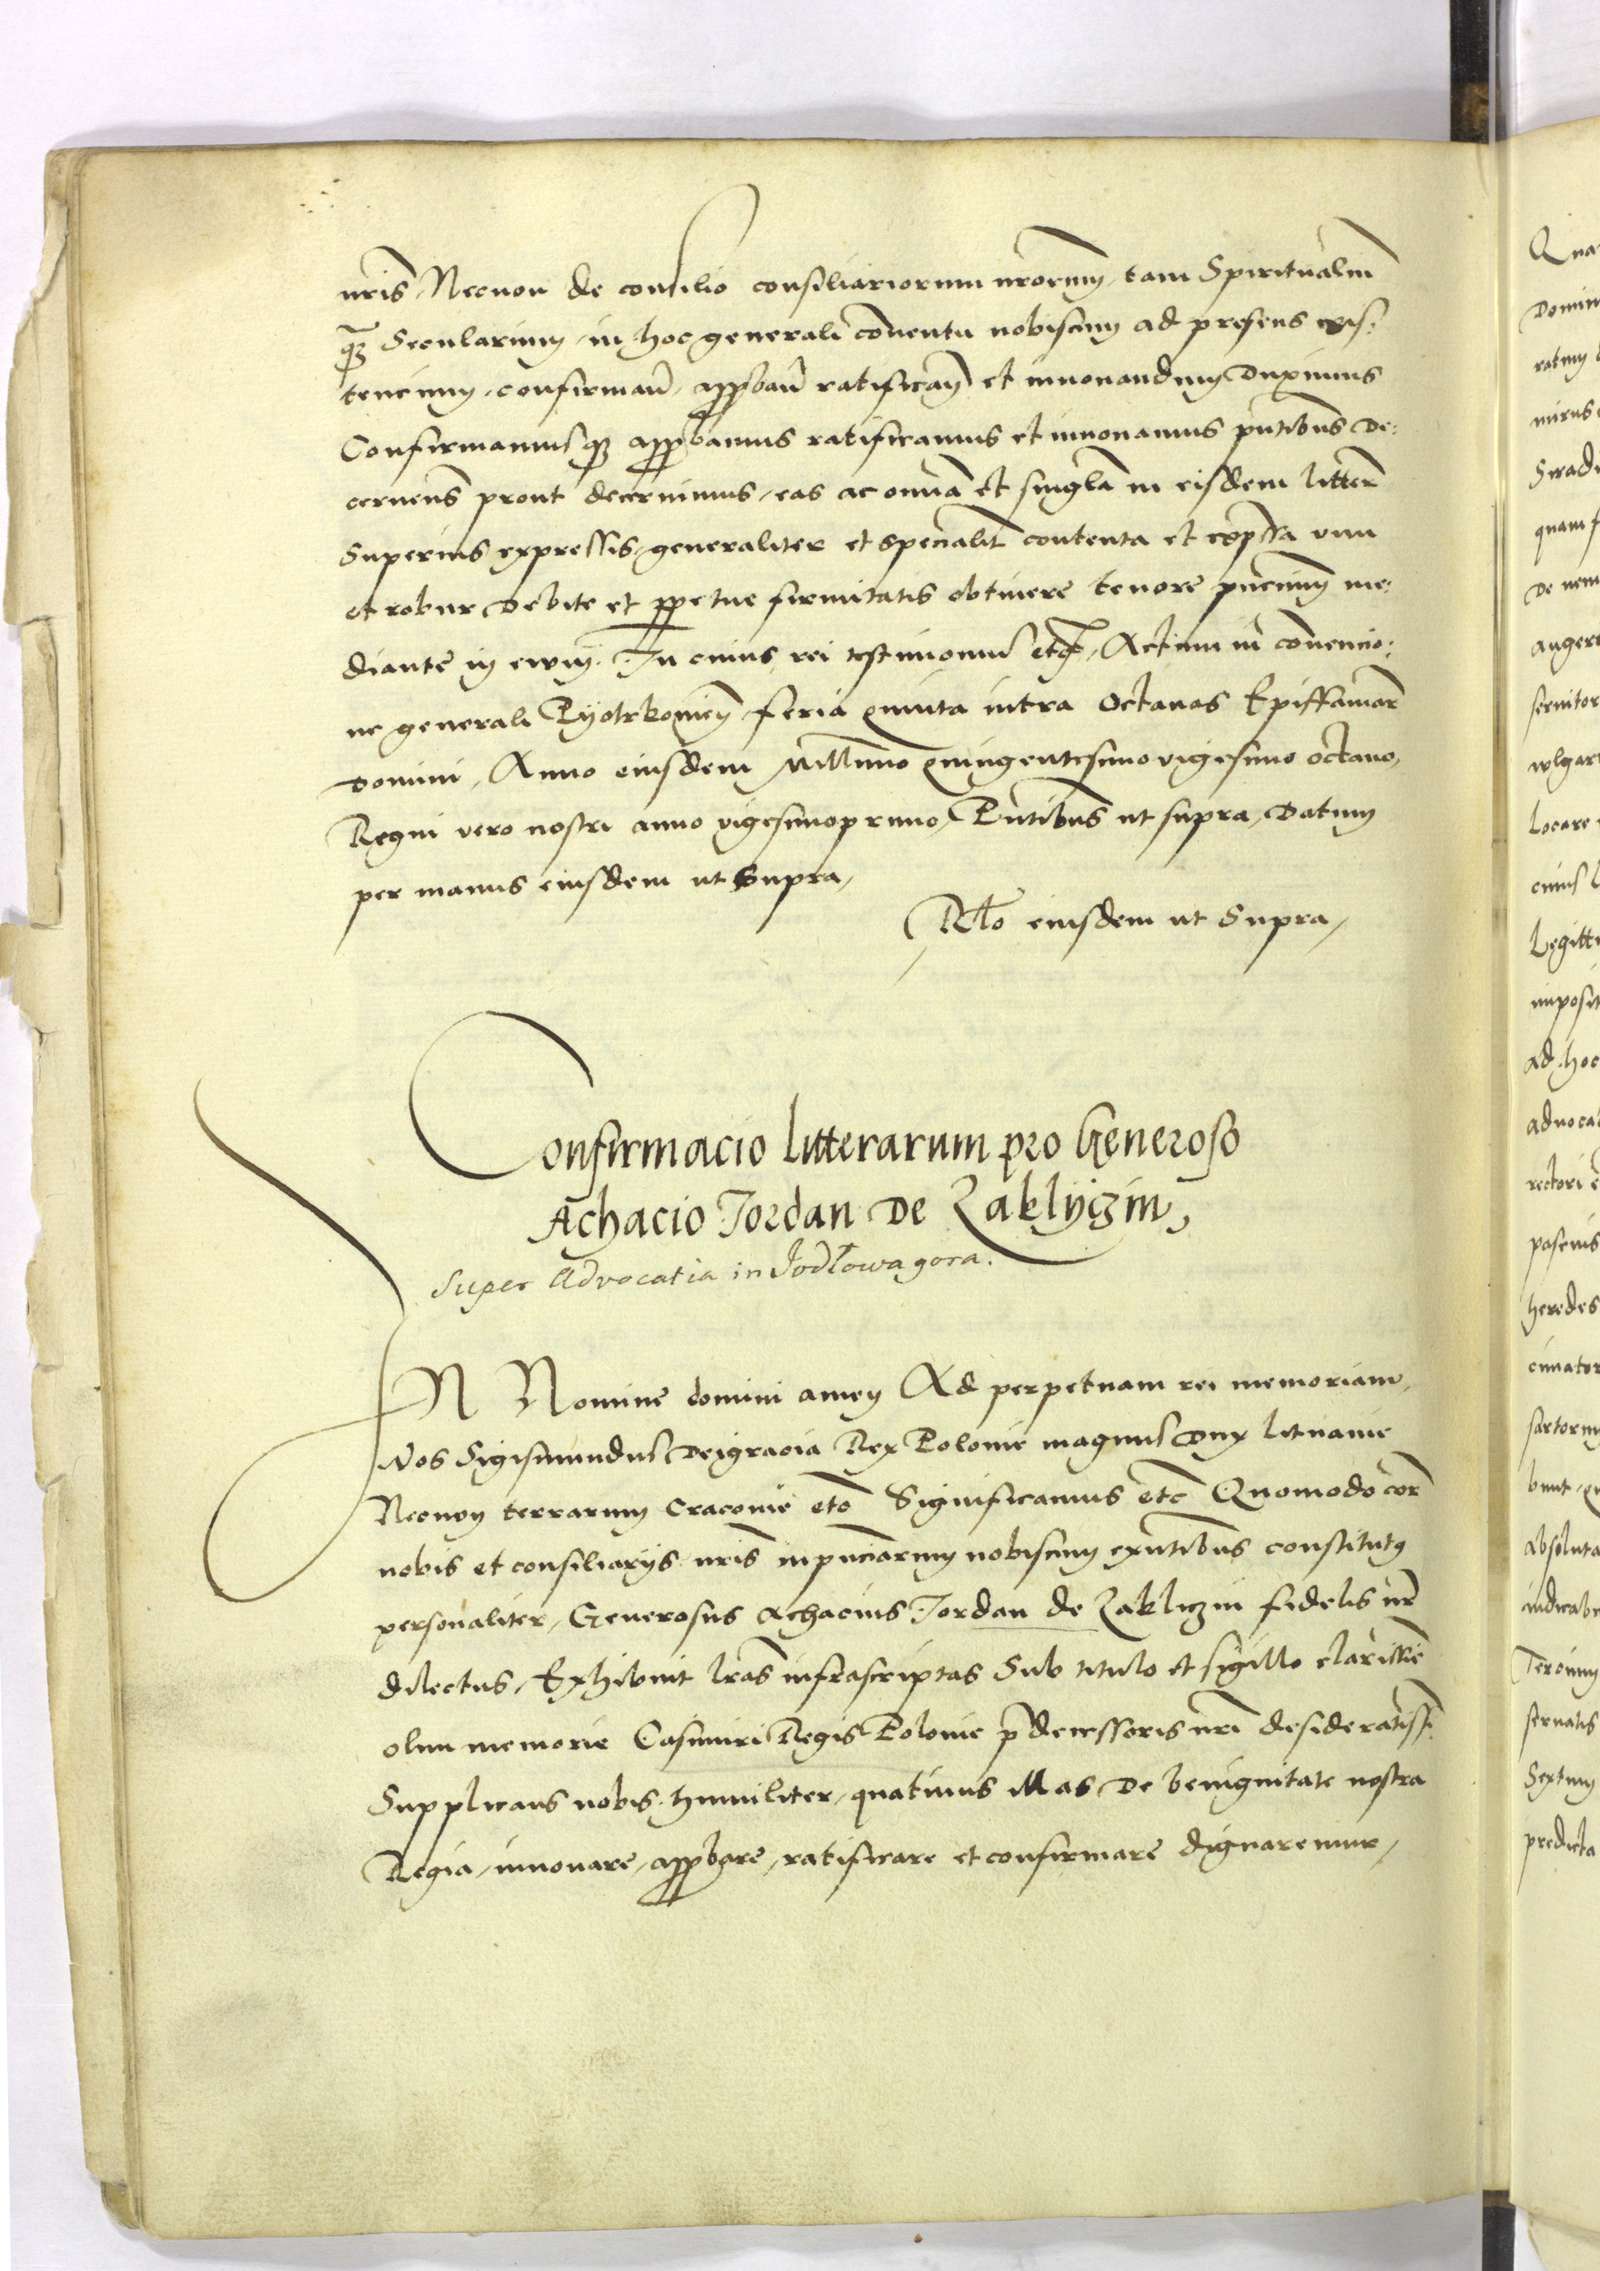 nris, Necnon de consilio consiliariorum nrorum, tam Spiritualiu
q̃ȝ Secularium, in hoc generali conuentu nobiscum ad presens exis:
tencium, confirman̄, appban̄ ratifican̄ et innouandum Duximus
Confirmamusqȝ appbamus ratificamus et innouamus pntibus De:
cernens prout decernimus, eas ac omnia et singla in eisdem litter
Superius expressis generaliter et specialit contenta et expssa vim
et robur Debite et ppetue firmitatis obtinere tenore pncium me:
diante in ewm. In cuius rei testimonium etc, Actum in conuencio:
ne generali Pyotrkouien feria quinta intra Octauas Epiffaniar
Domini, Anno eiusdem Millimo Quingentesimo vigesimo octauo,
Regni vero nostri anno vigesimoprimo, Pntibus ut supra, Datum
per manus eiusdem ut Supra,
Rtlo eiusdem ut Supra,
Confirmacio litterarum pro Generoso
Achacio Jordan De Zaklyczin,
Super Advocatia in Jodłowagora.
IN Nomine domini amen Ad perpetuam rei memoriam,
Nos Sigismundus Deigracia Rex Polonie magnus Dux Lituanie
Necnon terrarum Cracouie etc Significamus etc Quomodo cor
nobis et consiliarijs nris in pnciarum nobiscum exntibus constitutus
personaliter, Generosus Achacius Jordan de Zakliczin fidelis nr
dilectus, Exhibuit lras infrascriptas Sub titulo et sigillo clarissie
olim memorie Casimiri Regis Polonie pdecessoris nri desideratissi
Supplicans nobis humiliter, quatinus illas De benignitate nostra
Regia, innouare, appbare, ratificare et confirmare dignaremur,